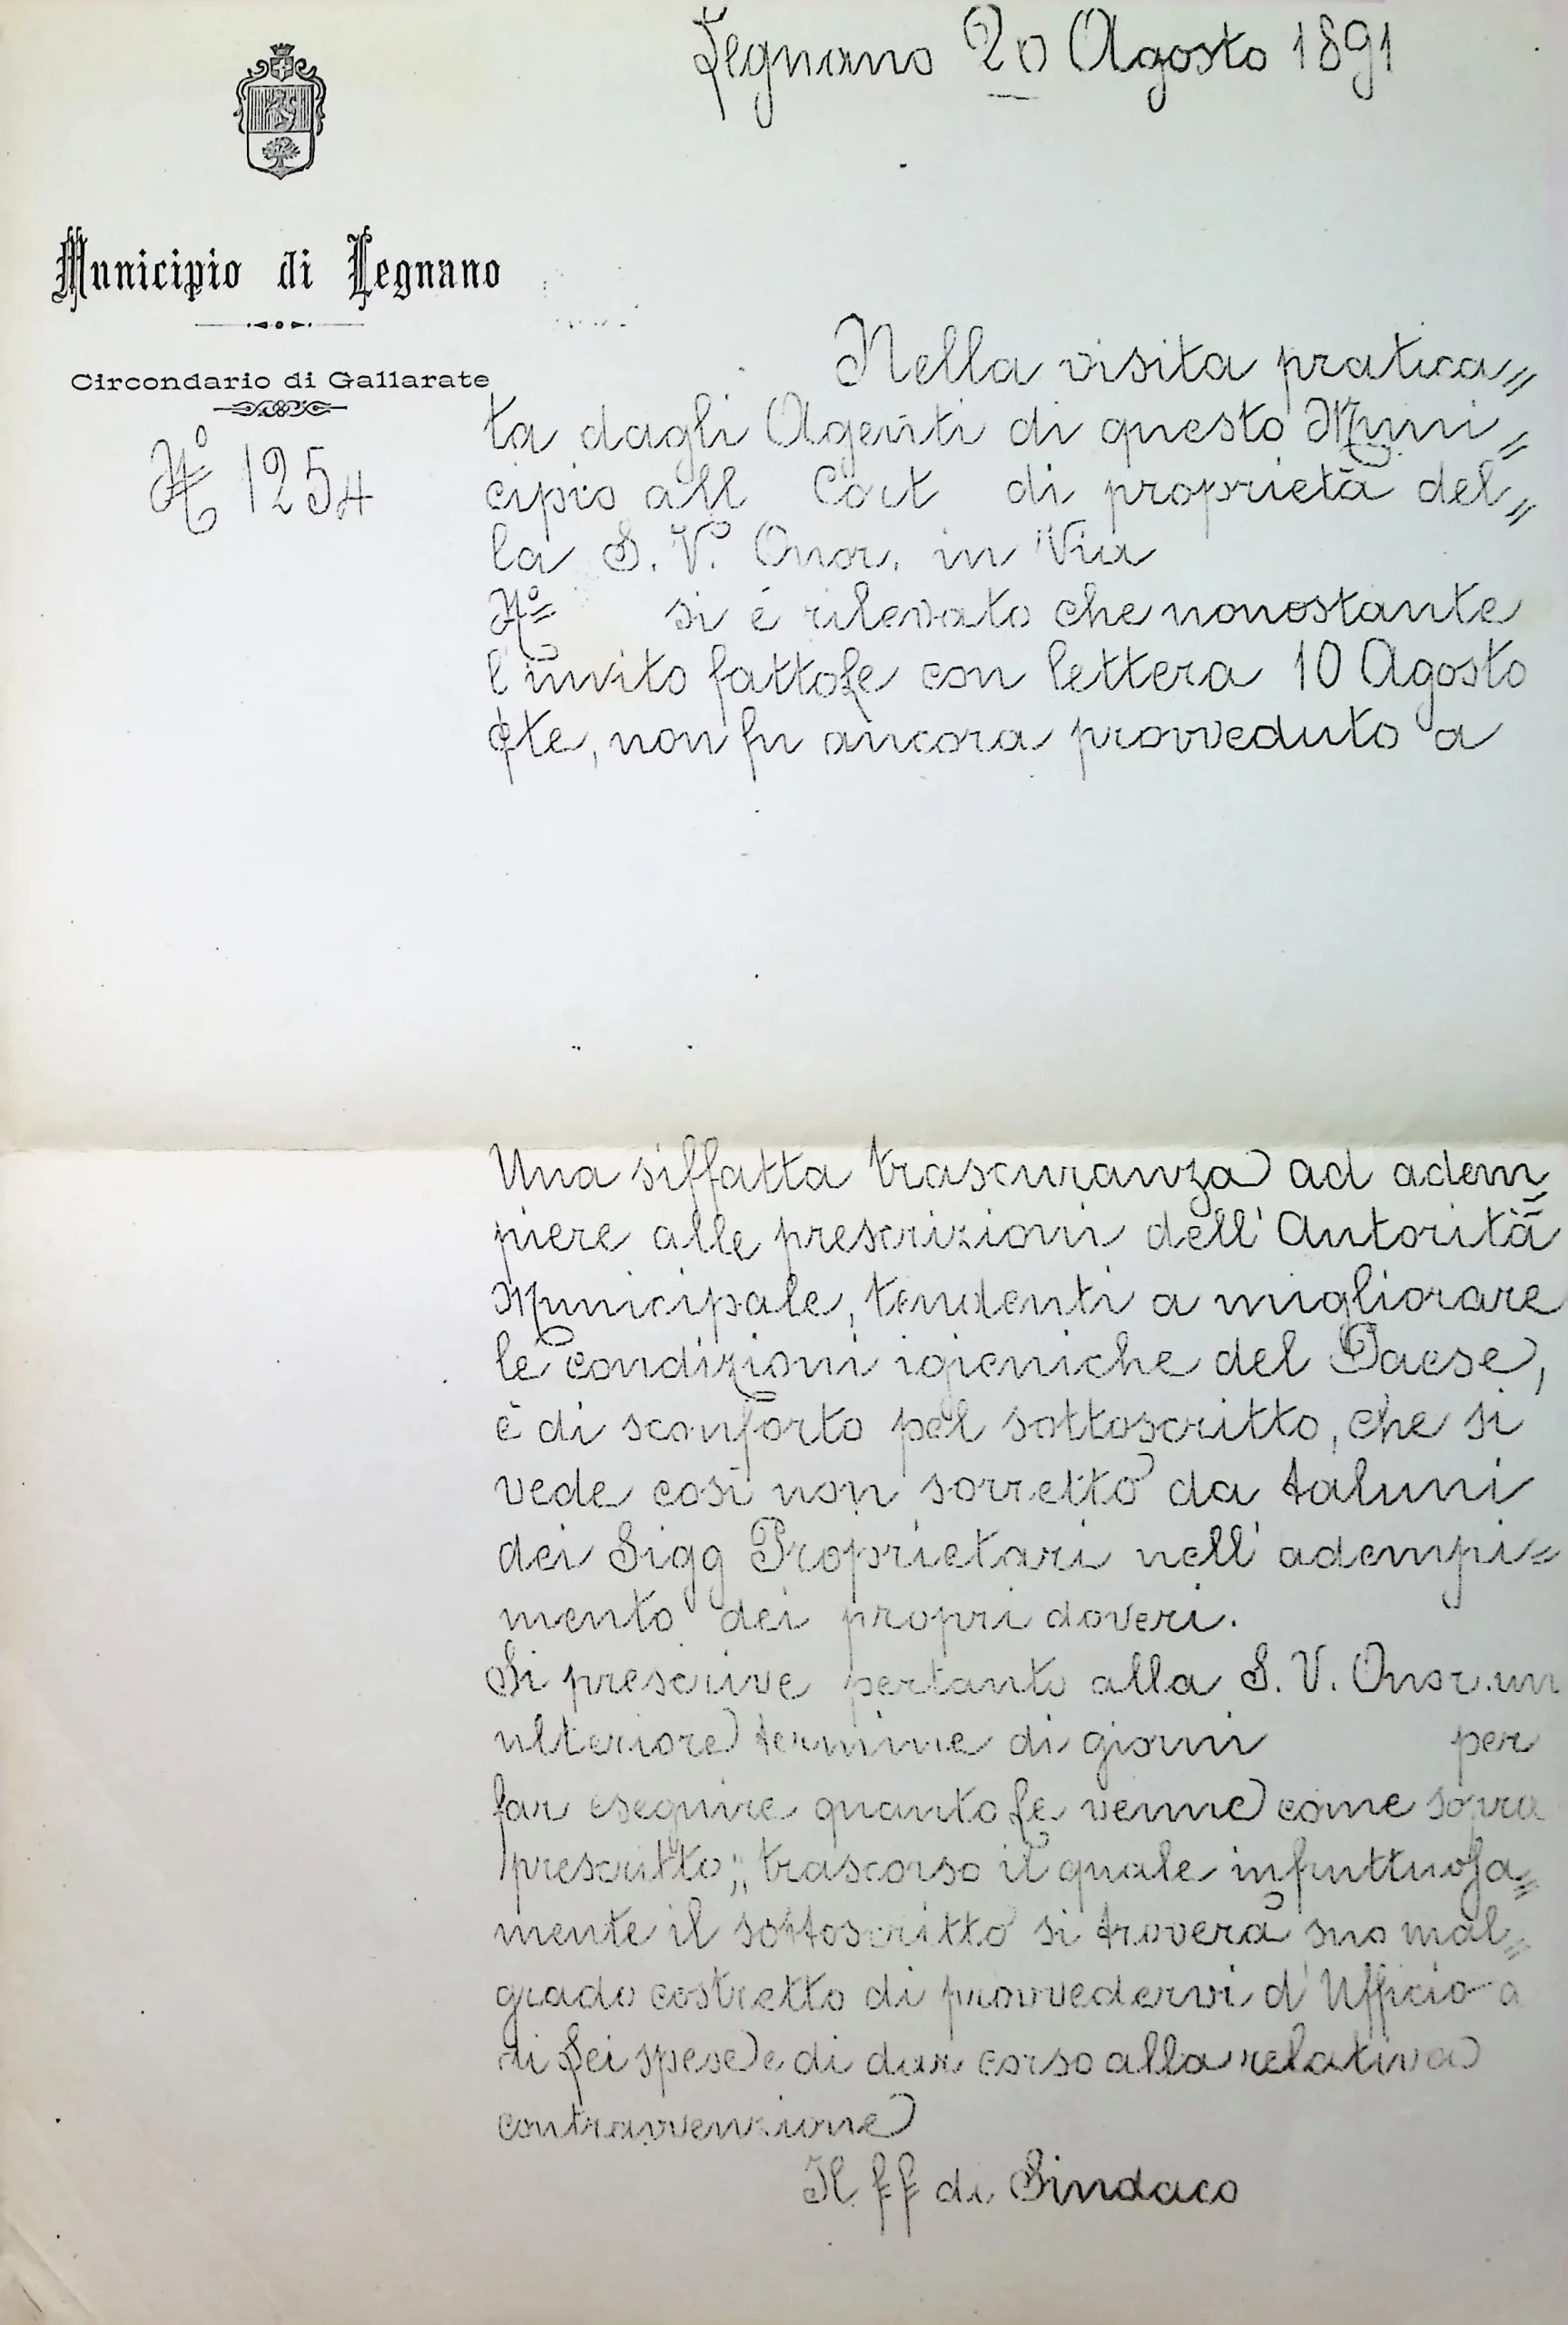 Legnano 20 Agosto 1891
Municipio di Legnano
Circondario di Gallarate
N° 1254
Nella visita pratica=
ta dagli Agenti di questo Muni=
cipio all Cort di proprietà del=
la S. V. Onor. in Via
N° si è rilevato che nonostante
l'invito fattole con lettera 10 Agosto
cte, non fu ancora provveduto a
Una siffatta trascuranza ad adem=
piere alle prescrizioni dell'Autorità
Municipale, tendenti a migliorare
le condizioni igieniche del Paese,
è di sconforto pel sottoscritto, che si
vede così non sorretto da taluni
dei Sigg Proprietari nell'adempi=
mento dei propri doveri.
Si prescrive pertanto alla S. V. Onor. un
ulteriore termine di giorni per
far eseguire quanto Le venne come sopra
prescritto; trascorso il quale infruttuosa=
mente il sottoscritto si troverà suo mal=
grado costretto di provvedervi d'Ufficio a
di Lei spese e di dar corso alla relativa
contravvenzione
Il ff di Sindaco